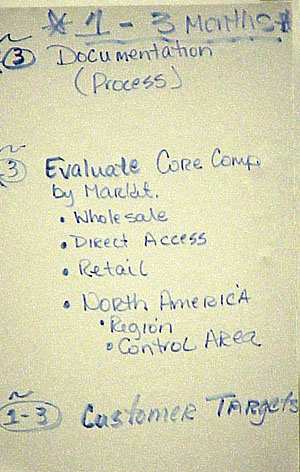 * 1 - 3 Months *
~ 3 Documentation
(Process)
~ 3 Evaluate Core Comp.
by Market.
• Wholesale
• Direct Access
• Retail
• North America
• Region
• Control Area
~ 1-3 Customer Targets